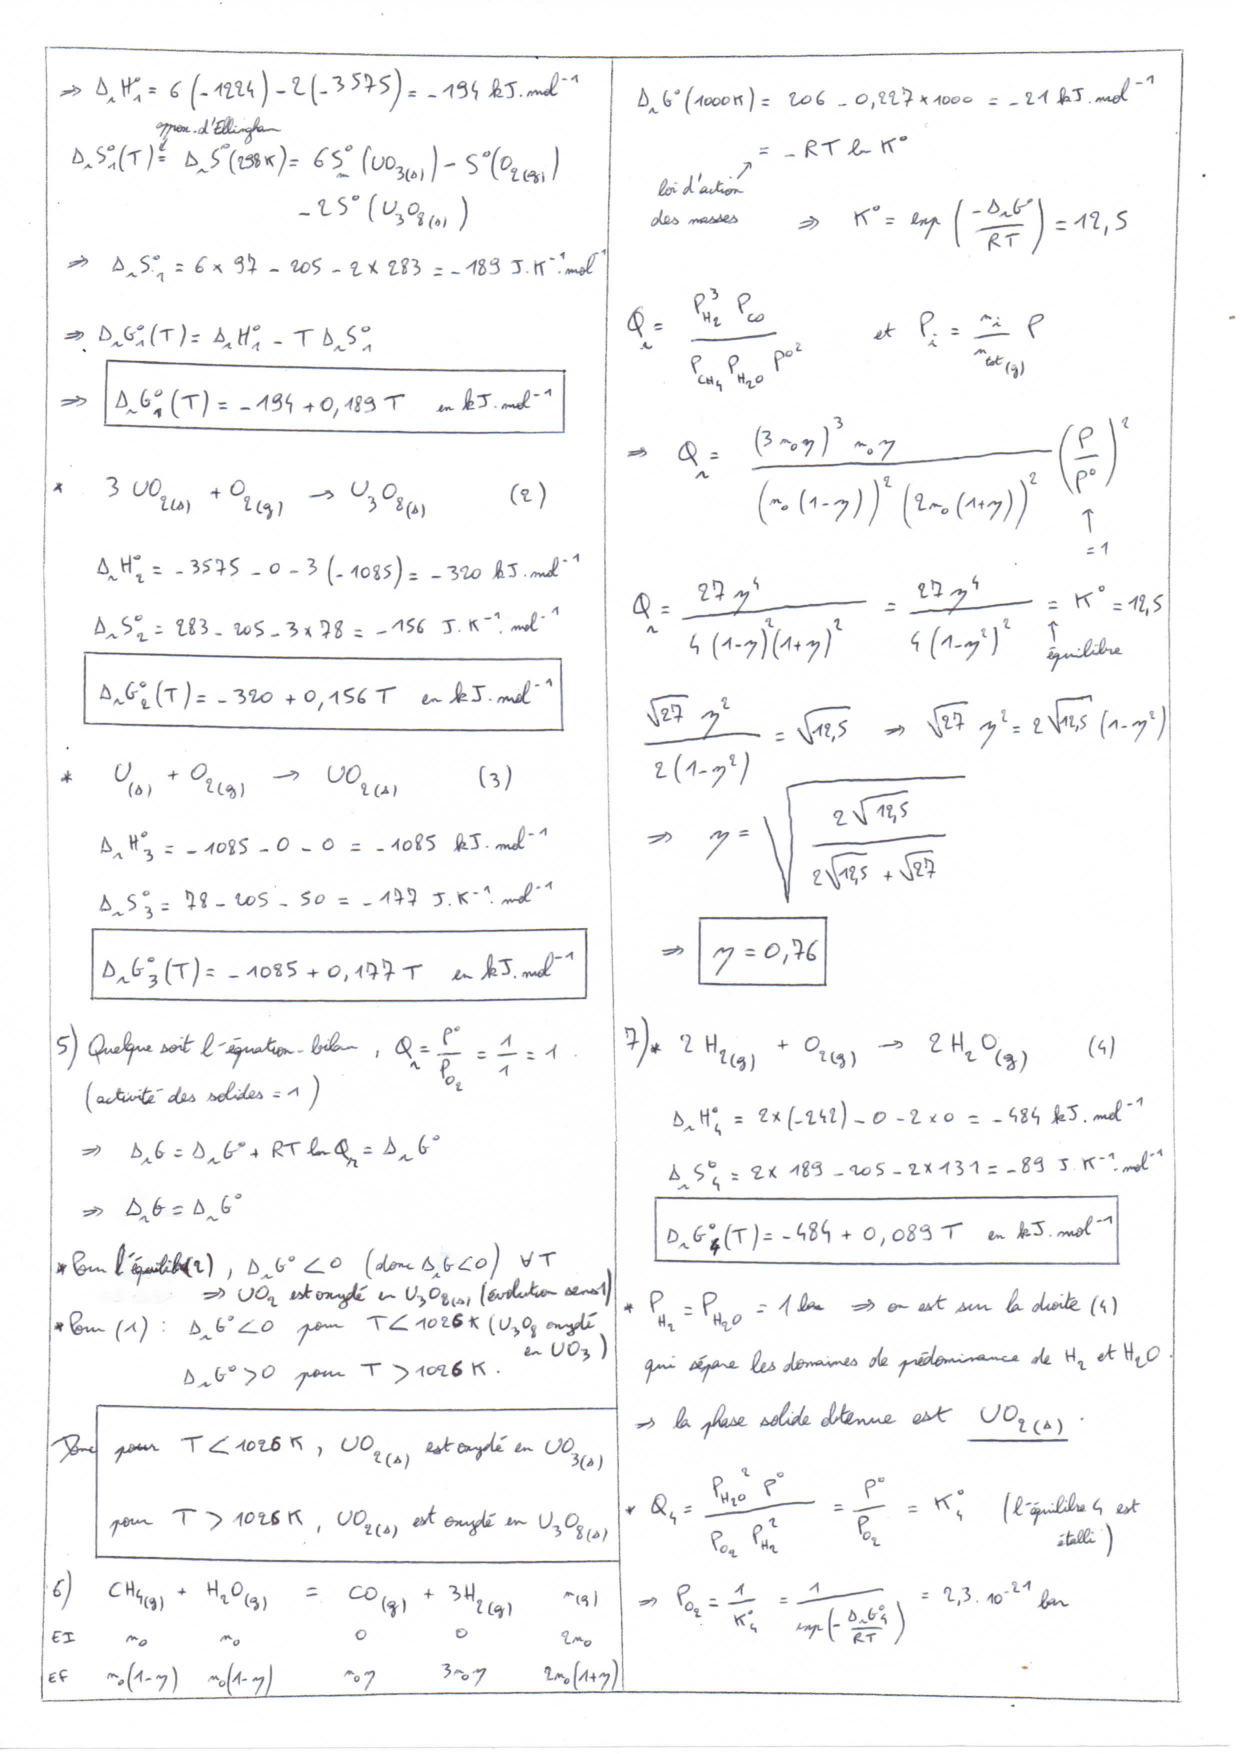 ⇒ ΔrH°1 = 6(-1224) - 2(-3575) = -194 kJ.mol⁻¹
approx. d'Ellingham
ΔrS°1(T) = ΔrS°(298K) = 6S°m(UO3(s)) - S°(O2(g))
- 2S°(U3O8(s))
⇒ ΔrS°1 = 6 × 97 - 205 - 2 × 283 = -189 J.K⁻¹.mol⁻¹
⇒ ΔrG°1(T) = ΔrH°1 - T ΔrS°1
⇒ ΔrG°1(T) = -194 + 0,189 T en kJ.mol⁻¹
* 3 UO2(s) + O2(g) → U3O8(s) (2)
ΔrH°2 = -3575 - 0 - 3(-1085) = -320 kJ.mol⁻¹
ΔrS°2 = 283 - 205 - 3×78 = -156 J.K⁻¹.mol⁻¹
ΔrG°2(T) = -320 + 0,156 T en kJ.mol⁻¹
* U(s) + O2(g) → UO2(s) (3)
ΔrH°3 = -1085 - 0 - 0 = -1085 kJ.mol⁻¹
ΔrS°3 = 78 - 205 - 50 = -177 J.K⁻¹.mol⁻¹
ΔrG°3(T) = -1085 + 0,177 T en kJ.mol⁻¹
5) Quelque soit l'équation-bilan, Qr = P°/PO2 = 1/1 = 1.
(activité des solides = 1)
⇒ ΔrG = ΔrG° + RT ln Qr = ΔrG°
⇒ ΔrG = ΔrG°
* Pour l'équilib(2), ΔrG° < 0 (donc ΔrG < 0) ∀T
⇒ UO2 est oxydé en U3O8(s) (évolution sens 1)
* Pour (1) : ΔrG° < 0 pour T < 1026 K (U3O8 oxydé
en UO3)
ΔrG° > 0 pour T > 1026 K.
Donc pour T < 1026 K, UO2(s) est oxydé en UO3(s)
pour T > 1026 K, UO2(s) est oxydé en U3O8(s)
6) CH4(g) + H2O(g) = CO(g) + 3H2(g) n(g)
EI n0 n0 0 0 2n0
EF n0(1-η) n0(1-η) n0η 3n0η 2n0(1+η)
ΔrG°(1000K) = 206 - 0,227×1000 = -21 kJ.mol⁻¹
= -RT ln K°
loi d'action
des masses ⇒ K° = exp(-ΔrG°/RT) = 12,5
Qr = PH2³ PCO / (PCH4 PH2O P°²) et Pi = ni/ntot(g) P
⇒ Qr = (3n0η)³ n0η / ((n0(1-η))² (2n0(1+η))²) (P/P°)²
↑
= 1
Qr = 27η⁴ / (4(1-η)²(1+η)²) = 27η⁴ / (4(1-η²)²) = K° = 12,5
↑
équilibre
√27 η² / (2(1-η²)) = √12,5 ⇒ √27 η² = 2√12,5 (1-η²)
⇒ η = √(2√12,5 / (2√12,5 + √27))
⇒ η = 0,76
7)* 2 H2(g) + O2(g) → 2 H2O(g) (4)
ΔrH°4 = 2×(-242) - 0 - 2×0 = -484 kJ.mol⁻¹
ΔrS°4 = 2× 189 - 205 - 2×131 = -89 J.K⁻¹.mol⁻¹
ΔrG°4(T) = -484 + 0,089 T en kJ.mol⁻¹
* PH2 = PH2O = 1 bar ⇒ on est sur la droite (4)
qui sépare les domaines de prédominance de H2 et H2O.
⇒ la phase solide obtenue est UO2(s).
* Q4 = PH2O² P° / (PO2 PH2²) = P°/PO2 = K°4 (l'équilibre 4 est
établi)
⇒ PO2 = 1/K°4 = 1/exp(-ΔrG°4/RT) = 2,3.10⁻²¹ bar